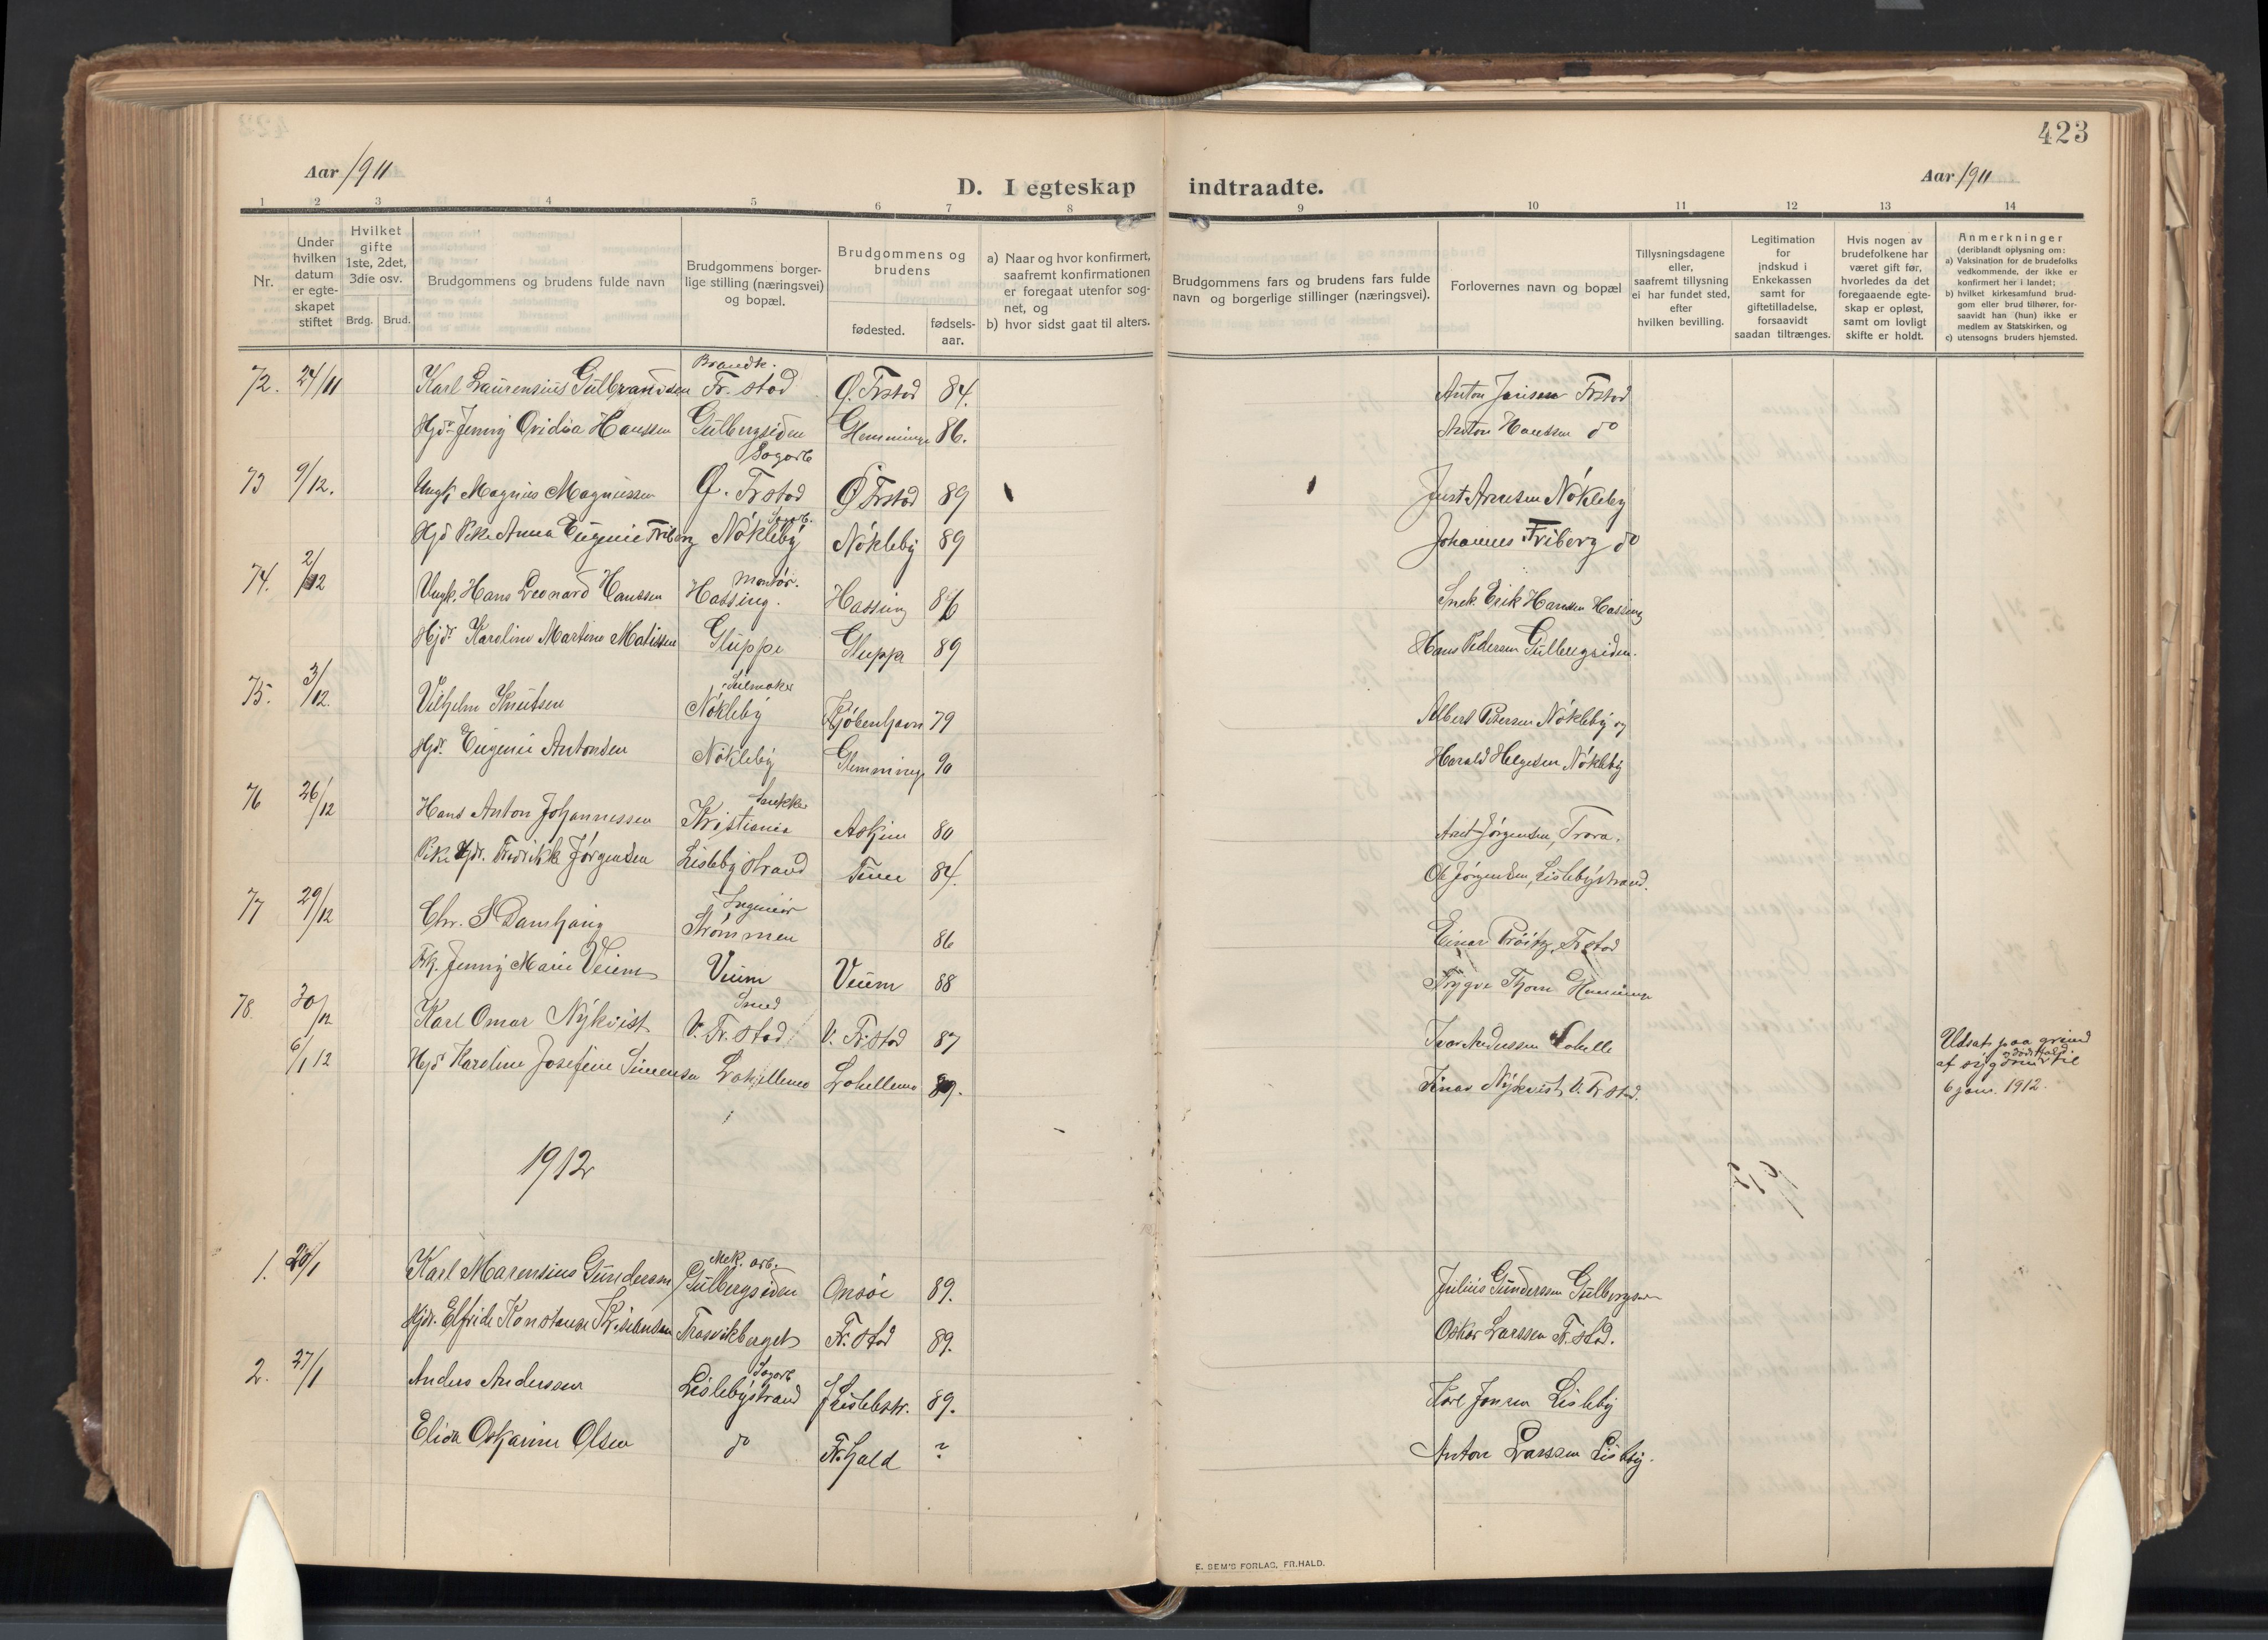 423
Aar 1911
D. I egteskap indtraadte.
Aar 1911
1 2 3 4 5 6 7 8 9 10 11 12 13 14
Nr.
Under hvilken datum er egteskapet stiftet
Hvilket gifte 1ste, 2det, 3die osv.
Brdg. Brud.
Brudgommens og brudens fulde navn
Brudgommens borgerlige stilling (næringsvei) og bopæl.
Brudgommens og brudens
fødested.
fødselsaar.
a) Naar og hvor konfirmert, saafremt konfirmationen er foregaat utenfor sognet, og
b) hvor sidst gaat til alters.
Brudgommens fars og brudens fars fulde navn og borgerlige stillinger (næringsvei).
Forlovernes navn og bopæl
Tillysningsdagene eller, saafremt tillysning ei har fundet sted, efter hvilken bevilling.
Legitimation for indskud i Enkekassen samt for giftetilladelse, forsaavidt saadan tiltrænges.
Hvis nogen av brudefolkene har været gift før, hvorledes da det foregaaende egteskap er opløst, samt om lovligt skifte er holdt.
Anmerkninger
(deriblandt oplysning om:
a) Vaksination for de brudefolks vedkommende, der ikke er konfirmert her i landet;
b) hvilket kirkesamfund brudgom eller brud tilhører, forsaavidt han (hun) ikke er medlem av Statskirken, og
c) utensogns bruders hjemsted.
Brandk.
72. 24/11 Karl Laurensius Gulbrandsen Fr. stad Ø. Frstad 84. Anton Jansen Frstad
Hjdr Jenny Ovidia Hanssen Gulbergsiden Glemminge 86. Anton Hanssen do
Sagarb
73 9/12. Ungk Magnus Magnussen Ø. Frstad Ø Frstad 89 Just Arnesen Nökleby
Hjd Pike Anna Eugenie Friberg Nökleby Nökleby 89 Johannes Friberg do
Montör.
74. 2/12 Ungk. Hans Leonard Hanssen Hassing. Hassing 86 Snek. Erik Hansen Hassing
Hjdr. Karoline Martine Matissen Gluppe Gluppe 89 Hans Pedersen Gulbergsiden.
Seilmaker
75. 3/12. Vilhelm Knutsen Nökleby Kjöbenhavn 79 Albert Petersen Nökleby og
Hjdr. Eugenie Antonsen Nökleby Glemminge 90 Harald Helgesen Nökleby
Snekker
76 26/12 Hans Anton Johannessen Kristiania Askim 80 Aret Jörgensen, Trara.
Pike Hjdr. Fredrikke Jörgensen Lislebystrand Tune 84. Ole Jörgensen, Lislebystrand.
Ingeniør
77 29/12 Chr. S Damhaug Strømmen 86 Einar Fr stad
Frk. Jenny Marie Veium Veum Veum 88 Trygve Thorn
Smed
78. 30/12 Karl Omar Nykvist V. Fr. stad V. Fr. stad 87 Ivar Anderssen
6/1 12 Hjd Karoline Josefine Simensen Lahellemo Lahellemo 89. Einar Nykvist, V. Fr stad.
Udsat paa grund af sygdom og dødsfald til 6 jan. 1912.
1912
Mek. arb.
1. 20/1 Karl Marensius Gundersen Gulbergsiden Onsöi 89. Julius Gunderssen Gulbergsiden
Hjdr. Elfride Konstanse Kristiansen Trosvikberget Fr. stad 89. Oskar Larssen Fr. stad.
Sagarb
2. 27/1 Anders Anderssen Lislebystrand Lislebstr. 89. Karl Jonsen Lisleby
Elida Oskarine Olsen do Fr.hald ? Anton Larssen Lisleby.
E. SEM'S FORLAG, FR.HALD.